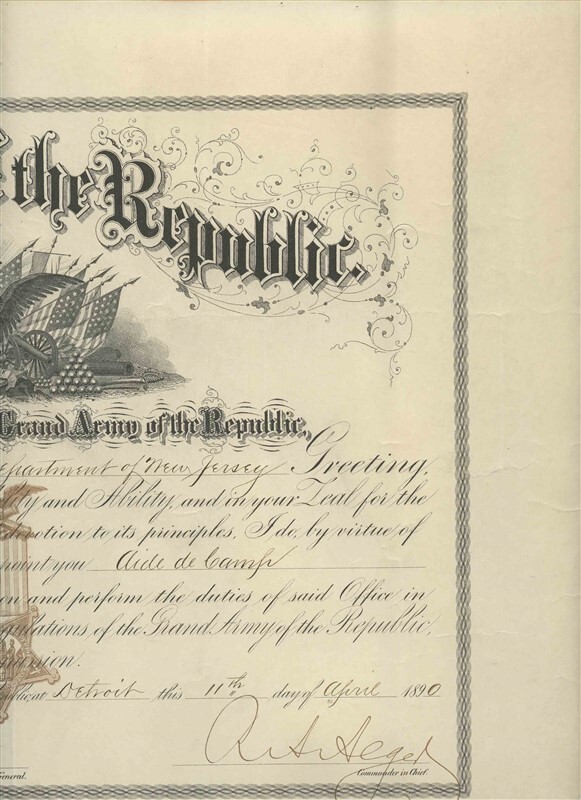 the Republic.
Grand Army of the Republic,
epartment of New Jersey Greeting,
ty and Ability, and in your Zeal for the
devotion to its principles, I do, by virtue of
point you Aide de Camp
on and perform the duties of said Office in
gulations of the Grand Army of the Republic,
Detroit this 11th day of April 1890
R. A. Alger
General. Commander in Chief.